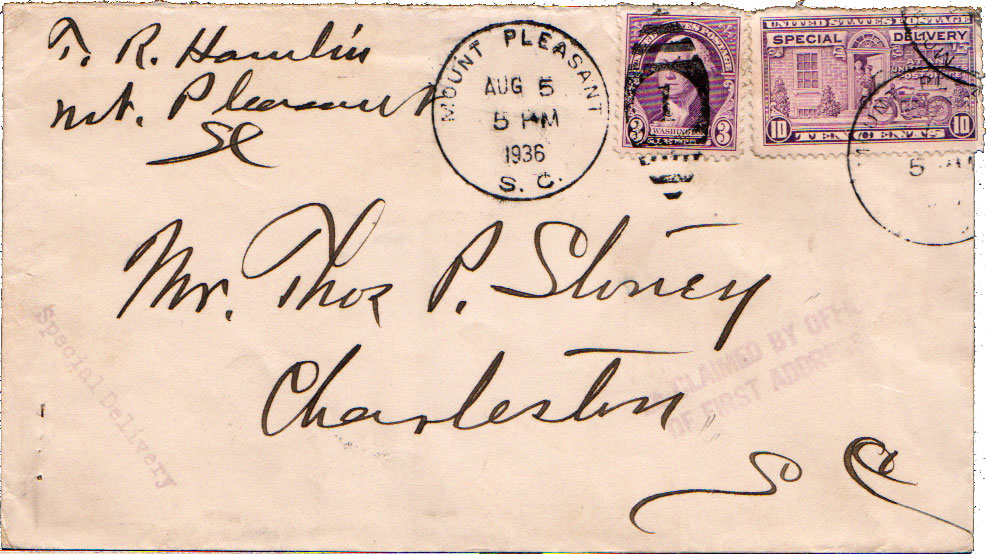 T. R. Hamlin
Mt. Pleasant
SC
MOUNT PLEASANT
AUG 5
5 PM
1936
S. C.
POSTAGE
3 WASHINGTON 3
UNITED STATES POSTAGE
SPECIAL DELIVERY
10 10
5
Mr. Thos P. Stoney
Charleston
S C
Special Delivery
CLAIMED BY
OF FIRST